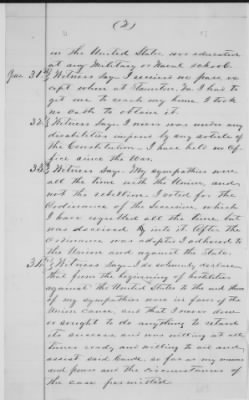 (2)
in the United States was educated
at any Military or Naval school.
Ques 31st Witness Says I received no pass ex-
cept when at Staunton Va I had to
get one to reach my home I took
no oath to obtain it.
32d Witness Says I never was under any
disabilities imposed by any article of
the Constitution. I have held no of-
fice since the War.
33d Witness Says. My sympathies were
all the time with the Union, and
not the rebellion. I voted for the
Ordinance of the Secession, which
I have regretted all the time but
was deceived into it. After the
Ordinance was adopted I adhered to
the Union and against the State.
Witness Says. I do solemnly declare
that from the beginning of hostilities
against the United States to the end thereof
my sympathies were in favor of the
Union cause, and that I never done
or sought to do anything to retard
its success and was willing at all
times ready and willing to aid and
assist said cause so far as my means
and power and the circumstances of
the case permitted